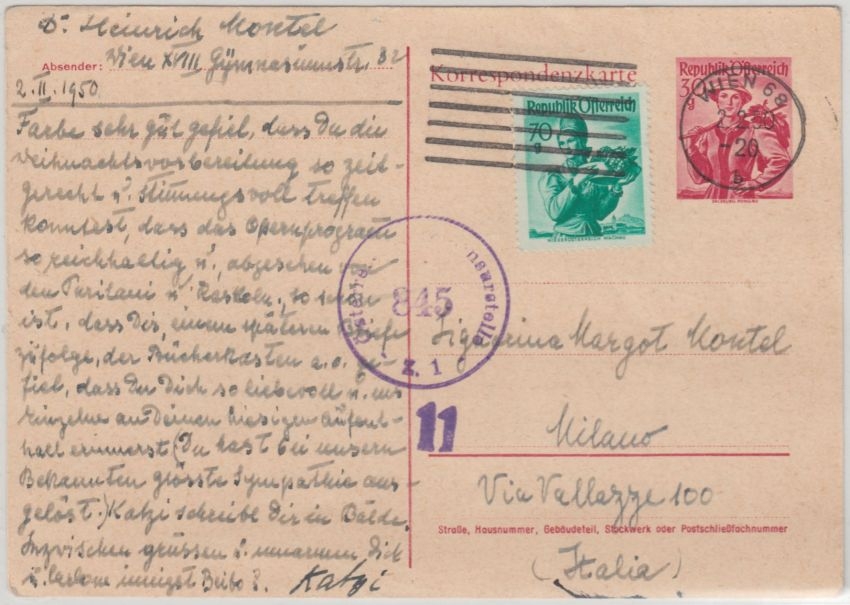 Dr. Heinrich Montel
Absender: Wien XVIII Gymnasiumstr. 32
2.II.1950
Farbe sehr gut gefiel, dass Du die
Weihnachtsvorbereitung so zeit-
gerecht u. stimmungsvoll treffen
konntest, dass das Opernprogram
so reichhaltig u., abgesehen von
den Puritani u. Raskoln., so schön
ist, dass Dir, einem späteren Briefe
zufolge, der Bücherkasten a.o. ge-
fiel, dass Du Dich so liebevoll u. ins
einzelne an Deinen hiesigen Aufent-
halt erinnerst (Du hast bei unsern
Bekannten grösste Sympathie aus-
gelöst.) Katzi schreibt Dir in Bälde.
Inzwischen grüssen u. umarmen Dich
innigst Katzi
Korrespondenzkarte
Republik Österreich
70
g
NIEDERÖSTERREICH WACHAU
Republik Österreich
30
g
SALZBURG, PONGAU
WIEN 68
2.2.50
-20
b
Österr. Zensurstelle
845
Z. 1
11
Signorina Margot Montel
Milano
Via Vallazze 100
Straße, Hausnummer, Gebäudeteil, Stockwerk oder Postschließfachnummer
(Italia)